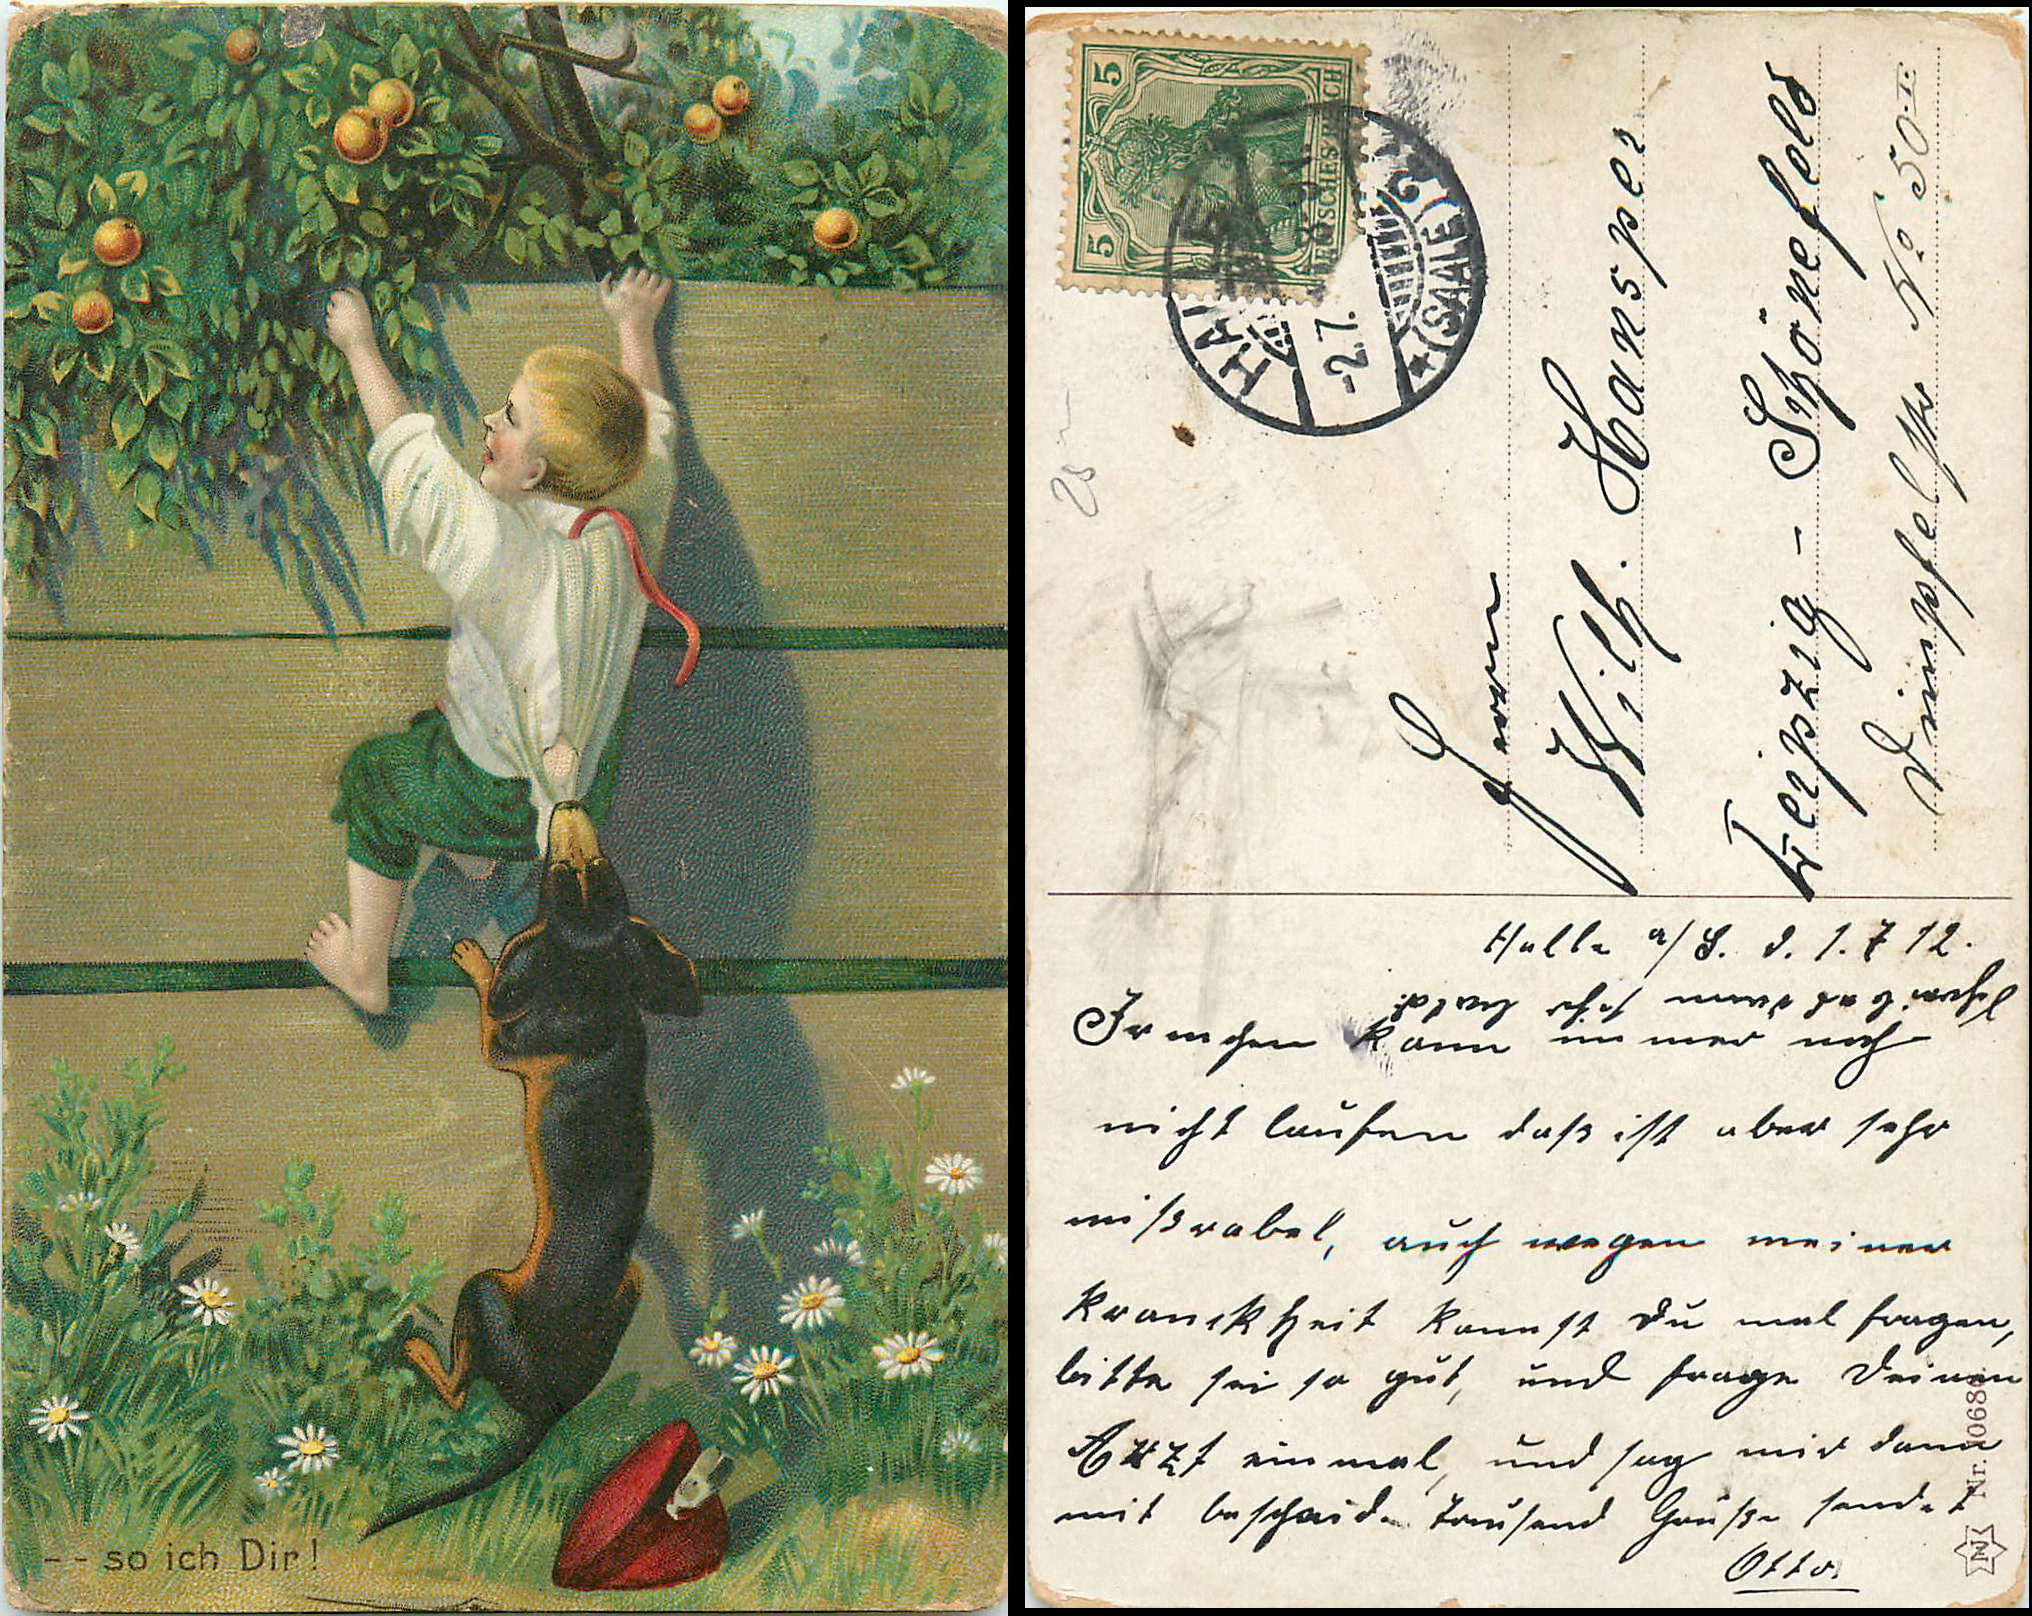 -- so ich Dir!
5
5
DEUTSCHES REICH
HALLE
(SAALE)
-2.7.
Herrn
Wilh. Hansper
Leipzig - Schönefeld
Dimpfelstr No. 50 I.
Halle a/S. d. 1.7 12.
schreibe
Irmchen kann immer noch
nicht laufen daß ist aber sehr
mißrabel, auch wegen meiner
Kranckheit kannst Du mal fragen,
bitte sei so gut, und frage Deinen
Arzt einmal, und sag mir dann
mit bescheid. Tausend Grüße sendet
Otto.
Nr. 1068